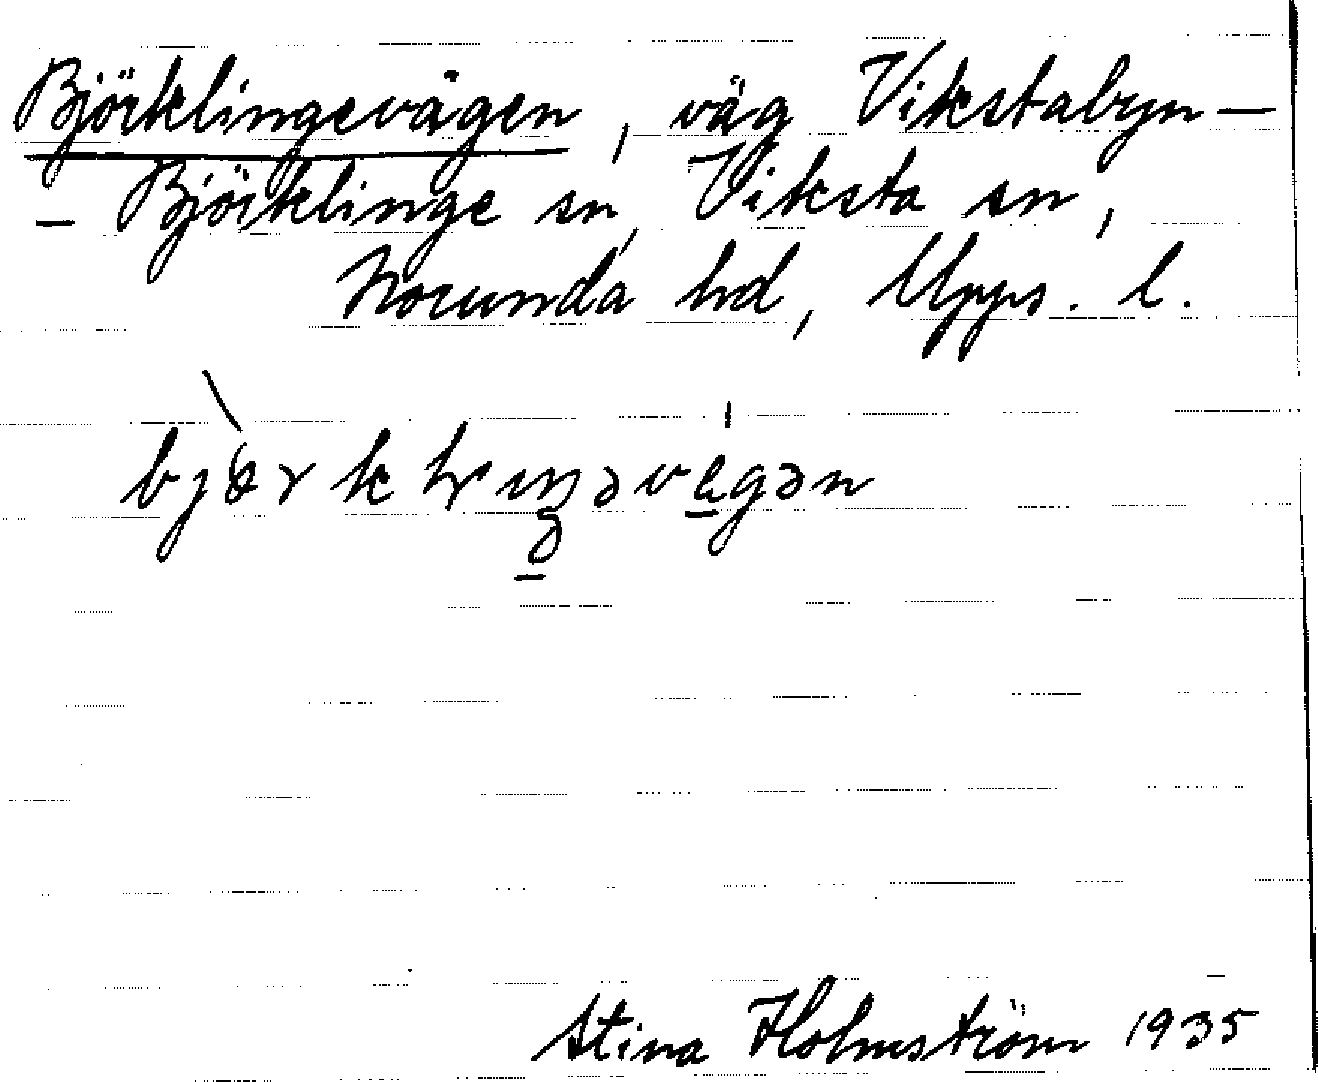 Björklingevägen, väg Vikstabyn—
— Björklinge sn, Viksta sn,
Norunda hd, Upps. l.
Stina Holmström 1935